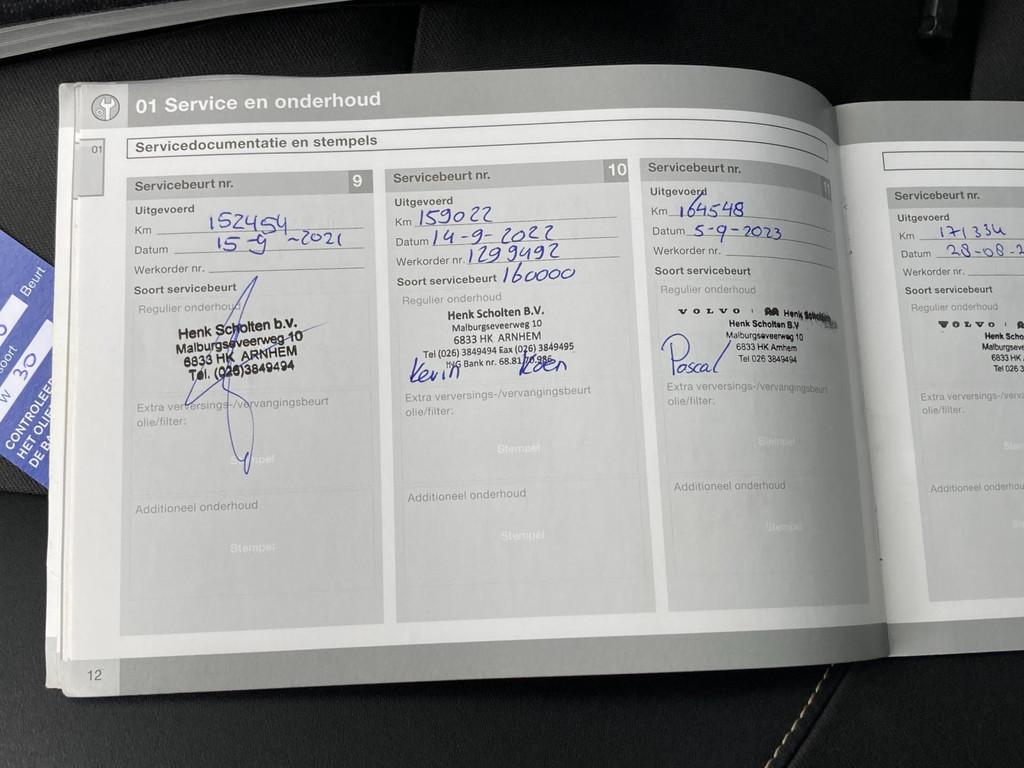 01 Service en onderhoud
01
Servicedocumentatie en stempels
Servicebeurt nr. 9
Uitgevoerd
Km 152454
Datum 15-9-2021
Werkorder nr.
Soort servicebeurt
Regulier onderhoud
Henk Scholten b.v.
Malburgseveerweg 10
6833 HK ARNHEM
Tel. (026)3849494
Extra verversings-/vervangingsbeurt
olie/filter:
Stempel
Additioneel onderhoud
Stempel
Servicebeurt nr. 10
Uitgevoerd
Km 159022
Datum 14-9-2022
Werkorder nr. 1299492
Soort servicebeurt 160000
Regulier onderhoud
Henk Scholten B.V.
Malburgseveerweg 10
6833 HK ARNHEM
Tel (026) 3849494 Fax (026) 3849495
ING Bank nr. 68.81.70.986
Kevin Koen
Extra verversings-/vervangingsbeurt
olie/filter:
Stempel
Additioneel onderhoud
Stempel
Servicebeurt nr. 11
Uitgevoerd
Km 164548
Datum 5-9-2023
Werkorder nr.
Soort servicebeurt
Regulier onderhoud
VOLVO Henk Scholten
Henk Scholten B.V
Malburgseveerweg 10
6833 HK Arnhem
Tel 026 3849494
Pascal
Extra verversings-/vervangingsbeurt
olie/filter:
Stempel
Additioneel onderhoud
Stempel
12
Servicebeurt nr.
Uitgevoerd
Km 171334
Datum 28-08-2
Werkorder nr.
Soort servicebeurt
Regulier onderhoud
VOLVO
Henk Scho
Malburgseve
6833 HK
Tel 026 3
Extra verversings-/verva
olie/filter:
Additioneel onderhou
Beurt
soort
W 30
CONTROLEE
HET OLIE
DE BA